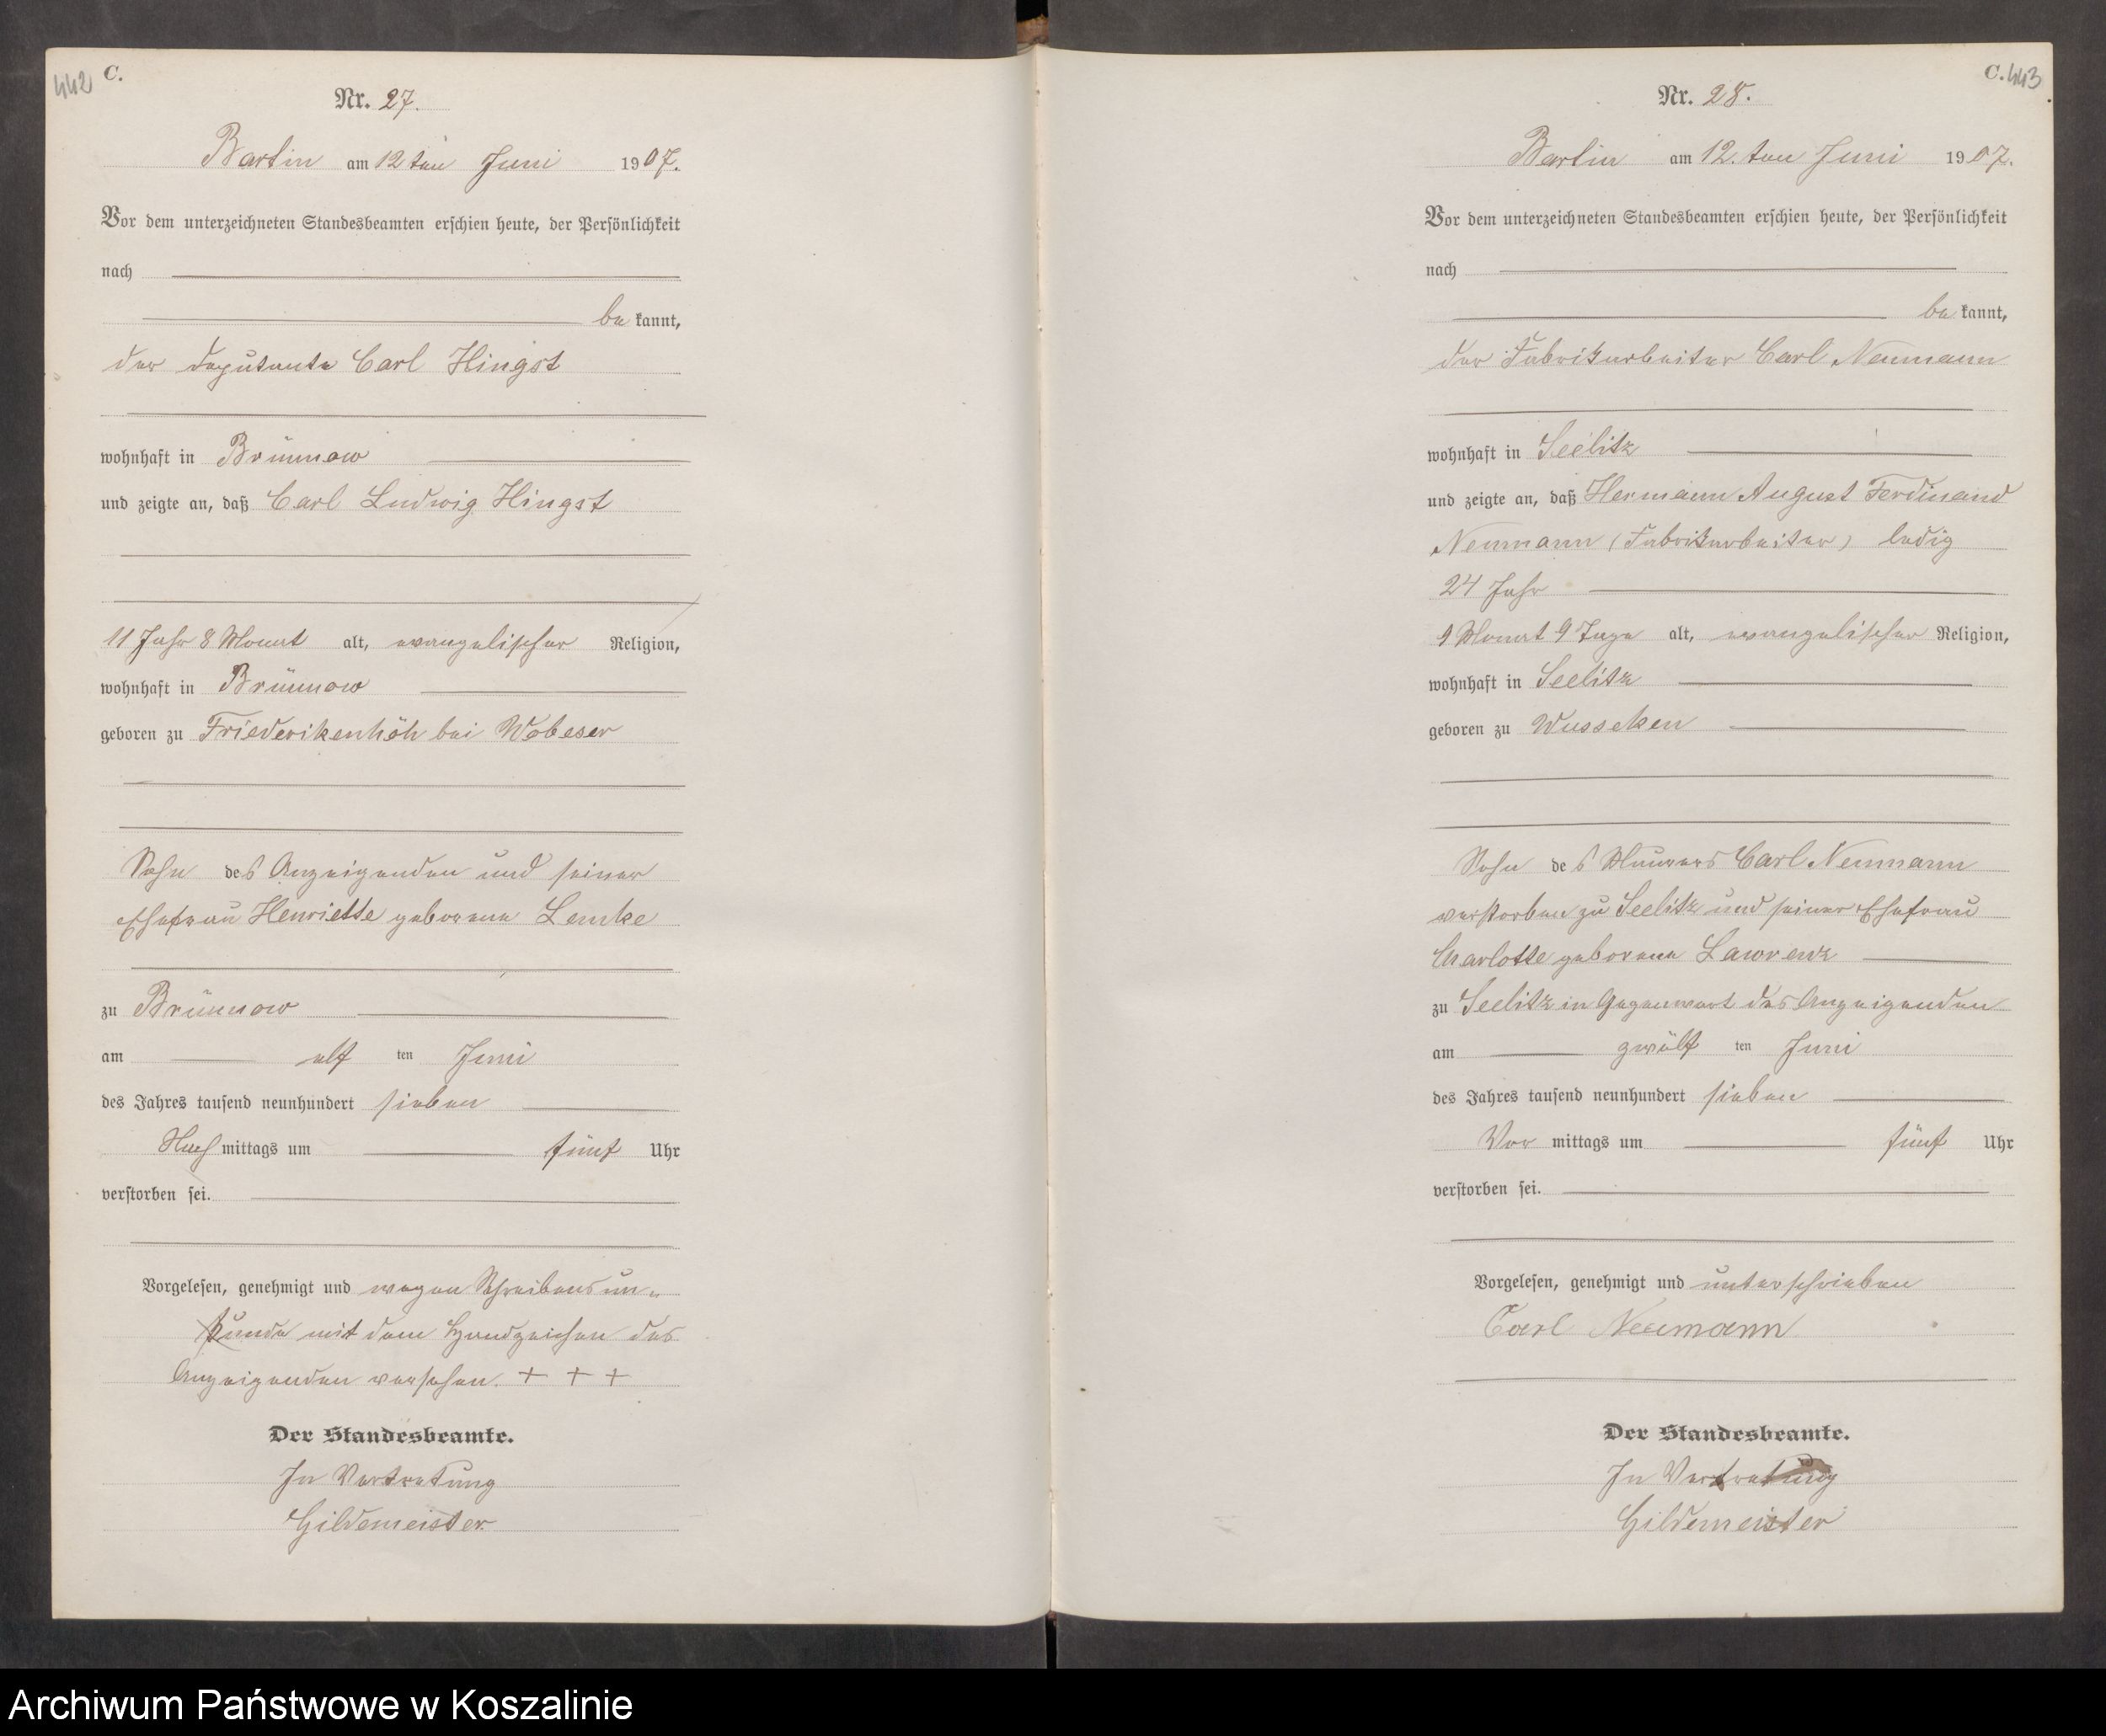 442
C.
Nr. 27.
Bartin am 12ten Juni 1907.
Vor dem unterzeichneten Standesbeamten erschien heute, der Persönlichkeit
nach
bekannt,
der Deputante Carl Hingst
wohnhaft in Brünnow
und zeigte an, daß Carl Ludwig Hingst
11 Jahr 8 Monat alt, evangelischer Religion,
wohnhaft in Brünnow
geboren zu Friederikenhöh bei Wobeser
Sohn des Anzeigenden und seiner
Ehefrau Henriette geborene Lemke
zu Brünnow
am elf ten Juni
des Jahres tausend neunhundert sieben
Nachmittags um fünf Uhr
verstorben sei.
Vorgelesen, genehmigt und wegen Schreibensun-
kunde mit dem Handzeichen des
Anzeigenden versehen. + + +
Der Standesbeamte.
In Vertretung
Gildemeister
C. 443
Nr. 28.
Bartin am 12. ten Juni 1907.
Vor dem unterzeichneten Standesbeamten erschien heute, der Persönlichkeit
nach
bekannt,
der Fabrikarbeiter Carl Neumann
wohnhaft in Seelitz
und zeigte an, daß Hermann August Ferdinand
Neumann (Fabrikarbeiter) ledig
24 Jahr
9 Monat 9 Tage alt, evangelischer Religion,
wohnhaft in Seelitz
geboren zu Wusseken
Sohn des Maurers Carl Neumann
verstorben zu Seelitz und seiner Ehefrau
Charlotte geborene Lawrenz
zu Seelitz in Gegenwart des Anzeigenden
am zwölf ten Juni
des Jahres tausend neunhundert sieben
Vor mittags um fünf Uhr
verstorben sei.
Vorgelesen, genehmigt und unterschrieben
Carl Neumann
Der Standesbeamte.
In Vertretung
Gildemeister
Archiwum Państwowe w Koszalinie